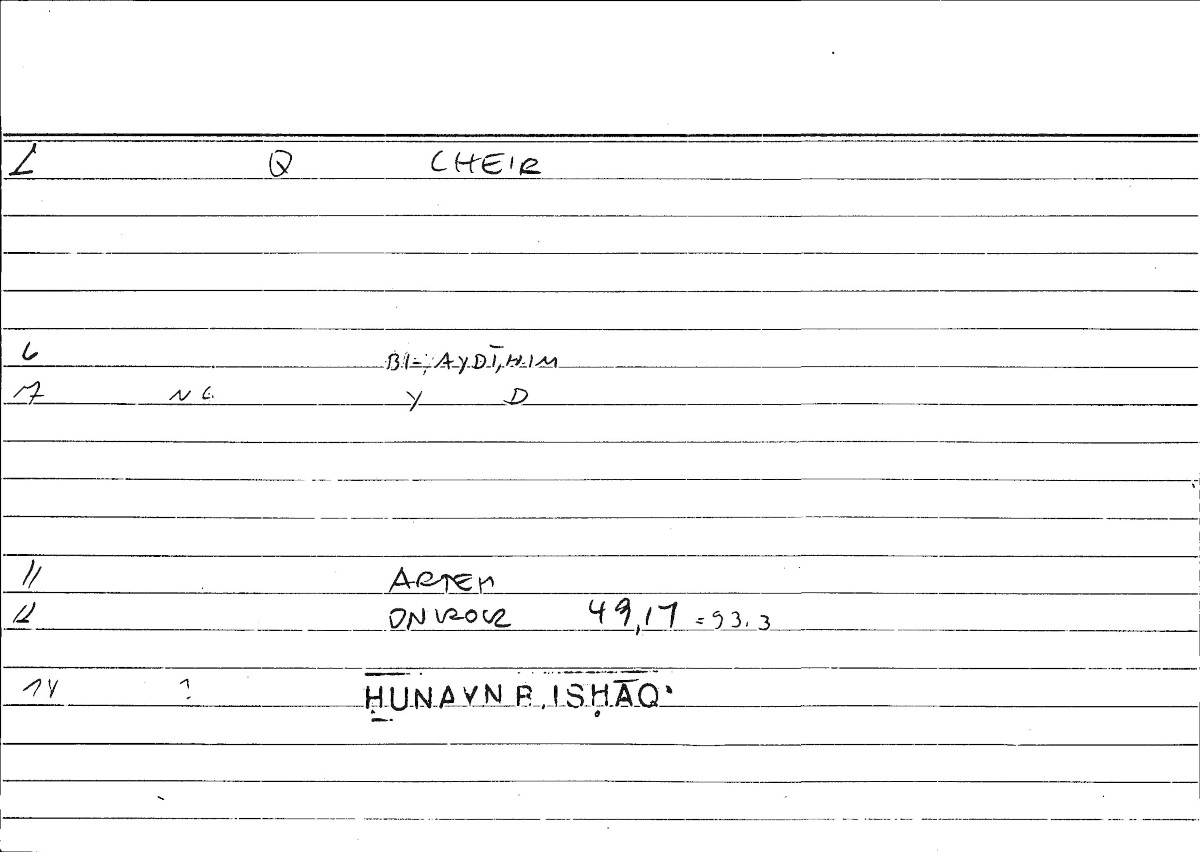 L Q CHEIR
6 BI-, AYDĪ, HIM
7 NG. Y D
11 ARTEM
12 ONIROCR 49,17 = 93.3
14 ? ḤUNAYN B. ISḤĀQ